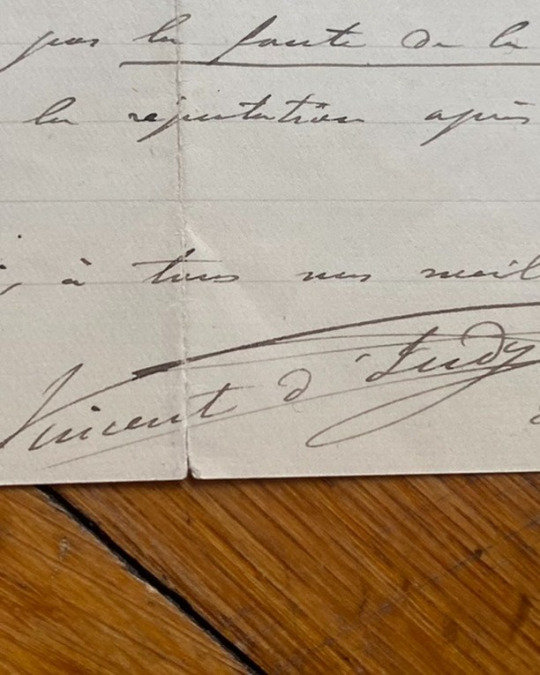 pas la faute de la
la réputation après
, à tous nos meil
Vincent d'Indy